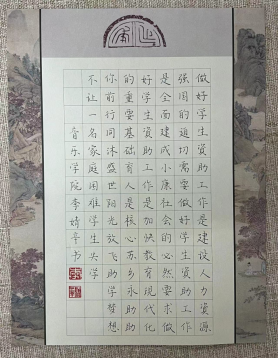 做好学生資助工作是建设人力資源
强国的迫切需要做好学生資助工作
是全面建成小康社会的必然要求做
好学生資助工作是加快教育现代化
的重要基础育人是核心苏乡永助助
你前行同沐盛世阳光放飞助学梦想
不让一名家庭困难学生失学
音乐学院李婧亭书